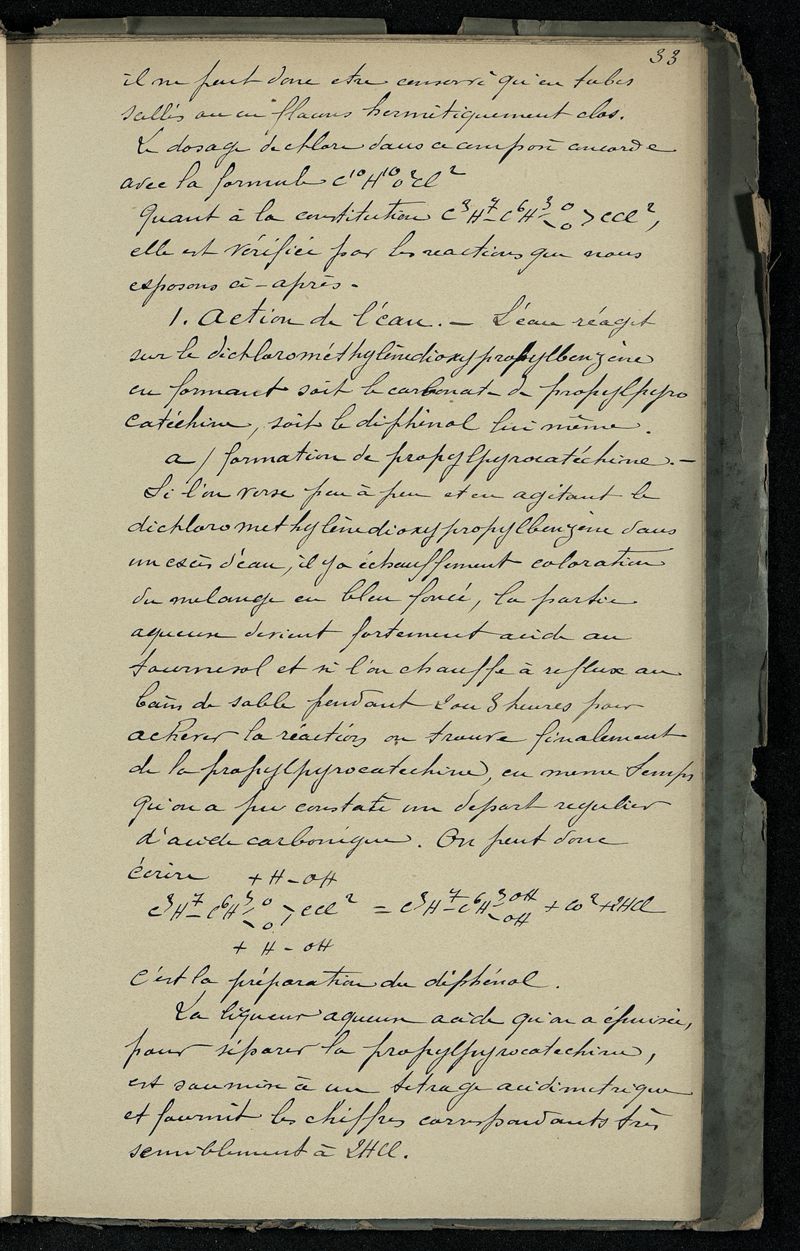 33
il ne peut donc etre conservé qu'en tubes
scellés ou en flacons hermétiquement clos.
Le dosage de chlore dans ce composé concorde
avec la formule C¹⁰H¹⁰O²Cl²
Quant à la constitution C³H⁷-C⁶H³<O O>CCl²,
elle est vérifiée par les reactions que nous
exposons ci-après-
1. Action de l'éau. — L'éau réagit
sur le dichlorométhylènedioxypropylbenzène
en formant soit le carbonate de propylpyro
catéchine, soit le diphénol lui même.
a) formation de propylpyrocatéchine. —
Si l'on verse peu à peu et en agitant le
dichloromethylènedioxypropylbenzène dans
un excès d'eau, il y a échauffement coloration
du melange en bleu foncé, la partie
aqueuse devient fortement acide au
tournesol et si l'on chauffe à reflux au
bain de sable pendant 2 ou 3 heures pour
achever la réaction on trouve finalement
de la propylpyrocatechine, en meme temps
qu'on a pu constater un depart regulier
d'acide carbonique. On peut donc
écrire + H-OH
C³H⁷-C⁶H³<O O>CCl² = C³H⁷-C⁶H³<OH OH + CO² + 2HCl
+ H-OH
C'est la préparation du diphénol.
La liqueur aqueuse acide qu'on a épuisée,
pour séparer la propylpyrocatechine,
est soumise à un tetrage acidimetrique
et fournit les chiffres correspondants très
sensiblement à 2HCl.